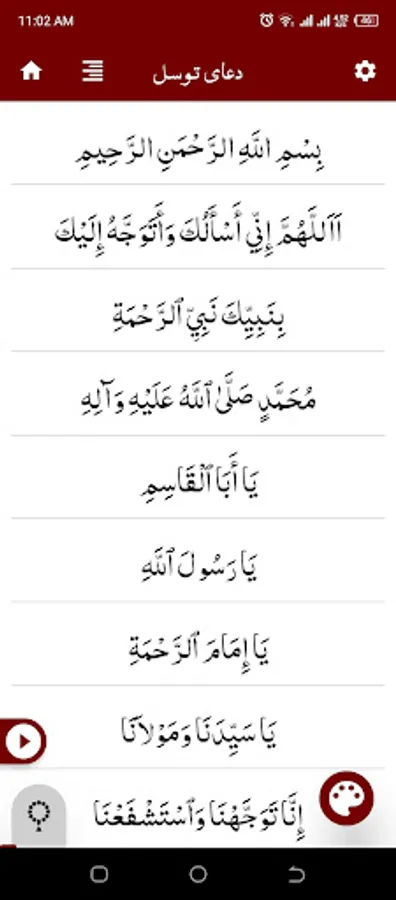 11:02 AM
دعای توسل
بِسْمِ اللَّهِ الرَّحْمَنِ الرَّحِيمِ
اَاَللَّهُمَّ إِنِّي أَسْأَلُكَ وَأَتَوَجَّهُ إِلَيْكَ
بِنَبِيِّكَ نَبِيِّ ٱلرَّحْمَةِ
مُحَمَّدٍ صَلَّىٰ ٱللَّهُ عَلَيْهِ وَآلِهِ
يَا أَبَا ٱلْقَاسِمِ
يَا رَسُولَ ٱللَّهِ
يَا إِمَامَ ٱلرَّحْمَةِ
يَا سَيِّدَنَا وَمَوْلاَنَا
إِنَّا تَوَجَّهْنَا وَٱسْتَشْفَعْنَا